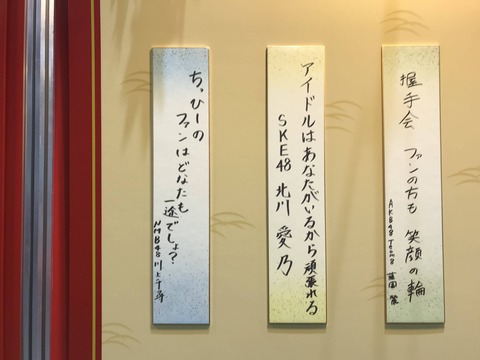 握手会 ファンの方も 笑顔の輪
AKB48 Team8 藤園 麗
アイドルはあなたがいるから頑張れる
SKE48 北川 愛乃
ちっひーの
ファンはどなたも
一途でしょ?
NMB48 川上千尋